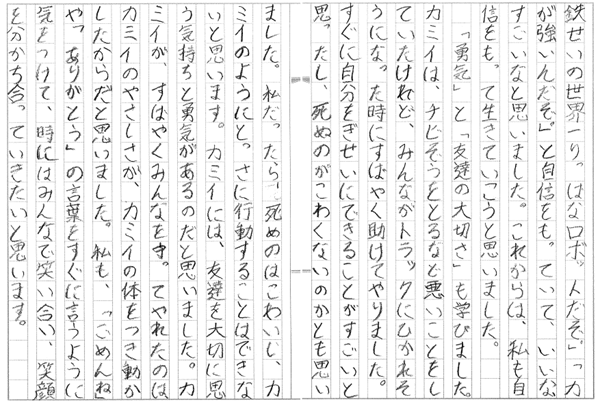 鉄せいの世界一りっぱなロボットだぞ。」「力
が強いんだぞ。」と自信をもっていて、いいな、
すごいなと思いました。これからは、私も自
信をもって生きていこうと思いました。
「勇気」と「友達の大切さ」も学びました。
カミイは、チビぞうをとるなど悪いことをし
ていたけれど、みんながトラックにひかれそ
うになった時にすばやく助けてやりました。
すぐに自分をぎせいにできることがすごいと
思ったし、死ぬのがこわくないのかとも思い
ました。私だったら、死ぬのはこわいし、カ
ミイのようにとっさに行動することはできな
いと思います。カミイには、友達を大切に思
う気持ちと勇気があるのだと思いました。カ
ミイが、すばやくみんなを守ってやれたのは
カミイのやさしさが、カミイの体をつき動か
したからだと思いました。私も、「ごめんね」
や「ありがとう」の言葉をすぐに言うように
気をつけて、時にはみんなで笑い合い、笑顔
を分かち合っていきたいと思います。